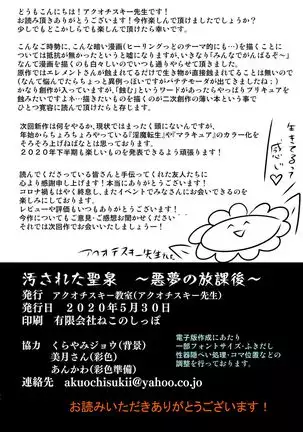 どうもこんにちは！アクオチスキー先生です！
お読み頂きありがとうございます！今作楽しんで頂けましたでしょうか？
少しでもどこかしらでも楽しんで頂けたら幸いです。
こんなご時勢に、こんな暗い漫画（ヒーリングっどのテーマ的にも…）を描くことに
ついては抵抗が無かったというと嘘になりますが、いきなり「みんなでがんばるぞ〜」
なんて漫画を描くのも白々しいのでいつも通りやらせて頂きました。
原作ではエレメントさんが蝕まれるだけで生き物が直接蝕まれてることは無いので
かなり創作が入ってますが、「蝕む」というワードがあったらやっぱりプリキュアを
蝕みたいですよ…描きたいものを描くのが二次創作の薄い本という事で
ひとつ寛容に読んで頂けたらと存じます。
次回新作は何をやるか、現状でははまったく頭にないんですが、
2020年下半期も楽しいものを発表できるよう頑張ります！
読んでくださっている皆さんと手伝ってくれた友人たちに
心より感謝申し上げます！本当にありがとうございます！
コロナ禍もはやく終息して、またイベントでみなさんにお会いできるのを
楽しみにしております。
レビューや評価もいつもありがとうございます！
今作についてもご意見・ご感想などお寄せいただけたら嬉しいです！
それでは次回作でお会いいたしましょー！
アクオチスキー先生
汚された聖泉　〜悪夢の放課後〜
発行　アクオチスキー教室（アクオチスキー先生）
発行日　２０２０年５月３０日
印刷　有限会社ねこのしっぽ
協力　くらやみジョウ（背景）
美月さん（彩色）
あんかわ（彩色準備）
連絡先　akuochisukii@yahoo.co.jp
電子版作成にあたり
一部フォントサイズ・ふきだし
性器隠ぺい処理・コマ位置などの
調整を行っております。
お読みいただきありがとうございます！